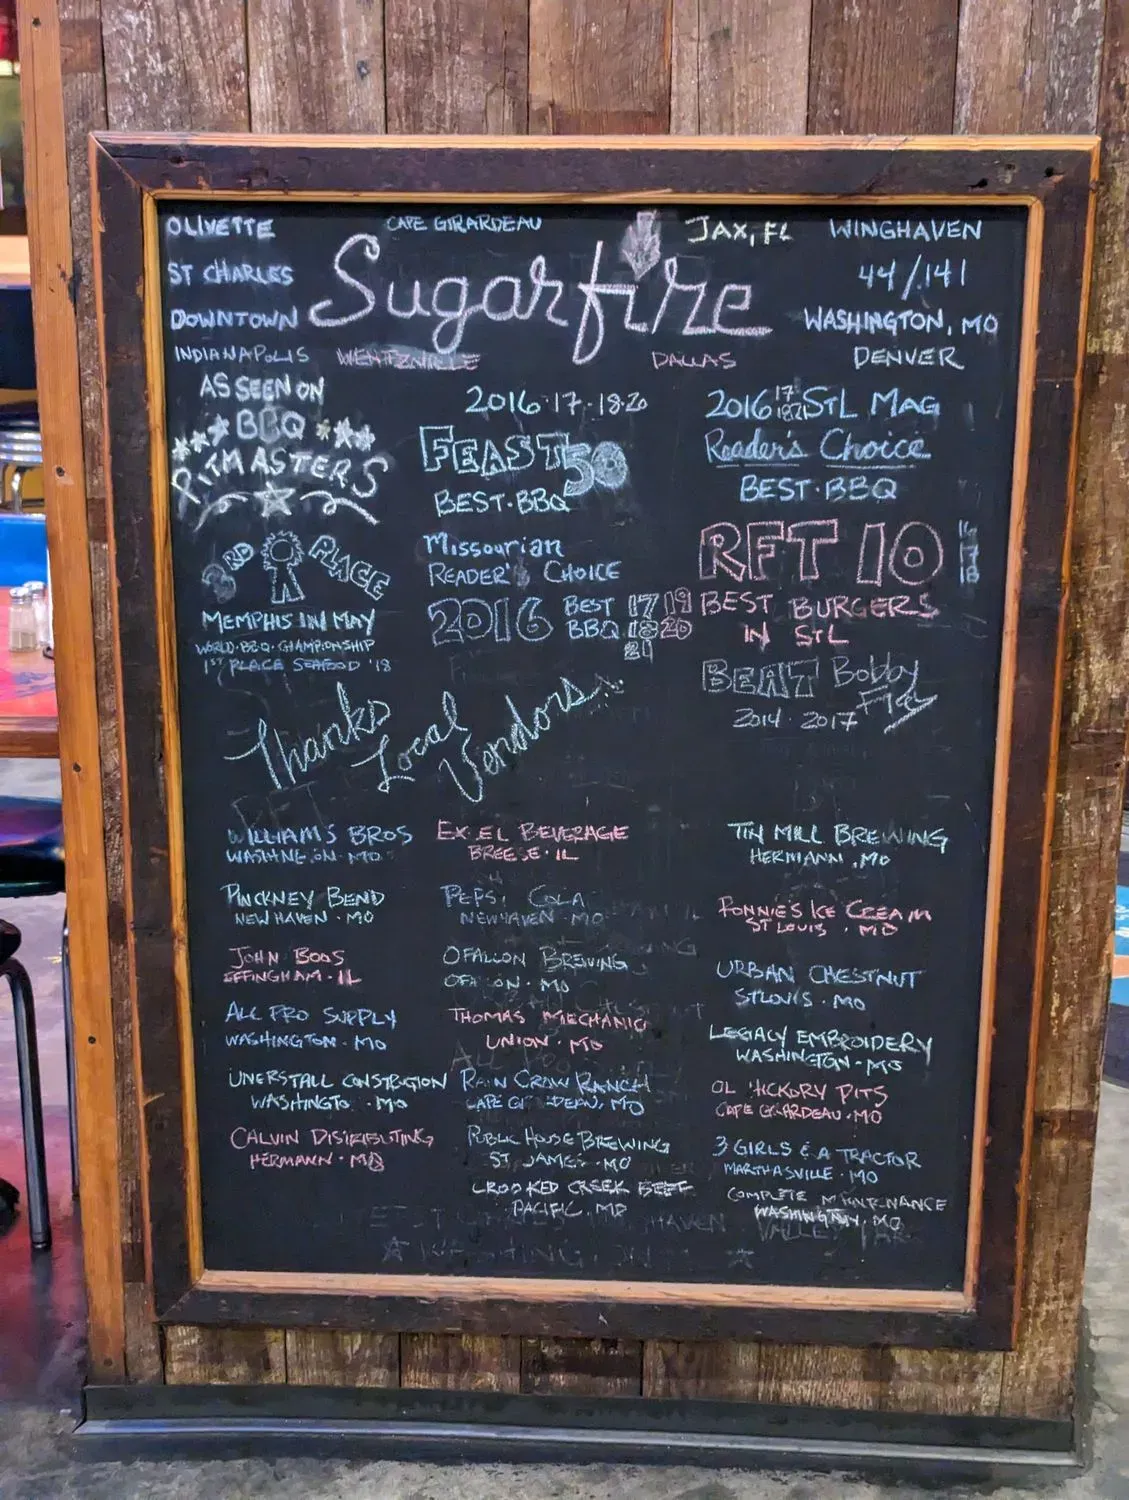 OLIVETTE
CAPE GIRARDEAU
JAX, FL
WINGHAVEN
ST CHARLES
Sugarfire
44/141
DOWNTOWN
WASHINGTON, MO
INDIANAPOLIS
WENTZVILLE
DALLAS
DENVER
AS SEEN ON
BBQ
PITMASTERS
3RD PLACE
MEMPHIS IN MAY
WORLD·BBQ·CHAMPIONSHIP
1ST PLACE SEAFOOD '18
2016·17·18·20
FEAST 50
BEST·BBQ
Missourian
READER'S CHOICE
2016 BEST BBQ 17 19
18 20
21
2016 17 18 STL MAG
Reader's Choice
BEST·BBQ
RFT 10
BEST BURGERS
IN STL
BEAT Bobby
Flay
2014 · 2017
Thanks
Local
Vendors...
WILLIAM'S BROS
WASHINGTON · MO
PINCKNEY BEND
NEW HAVEN · MO
JOHN BOOS
EFFINGHAM · IL
ALL PRO SUPPLY
WASHINGTON · MO
UNERSTALL CONSTRUCTION
WASHINGTO · MO
CALVIN DISTRIBUTING
HERMANN · MO
EX EL BEVERAGE
BREESE · IL
PEPSI COLA
NEW HAVEN · MO
OFALLON BREWING
OFA ON · MO
THOMAS MECHANIC
UNION · MO
RAIN CROW RANCH
CAPE GI DEAU, MO
PUBLIC HOUSE BREWING
ST JAMES · MO
CROOKED CREEK BEEF
PACIFIC, MO
TIN MILL BREWING
HERMANN, MO
RONNIE'S ICE CREAM
ST LOUIS · MO
URBAN CHESTNUT
ST LOUIS · MO
LEGACY EMBROIDERY
WASHINGTON · MO
OL HICKORY PITS
CAPE GIRARDEAU · MO
3 GIRLS & A TRACTOR
MARTHASVILLE · MO
COMPLETE MAINTENANCE
WASHINGTON, MO